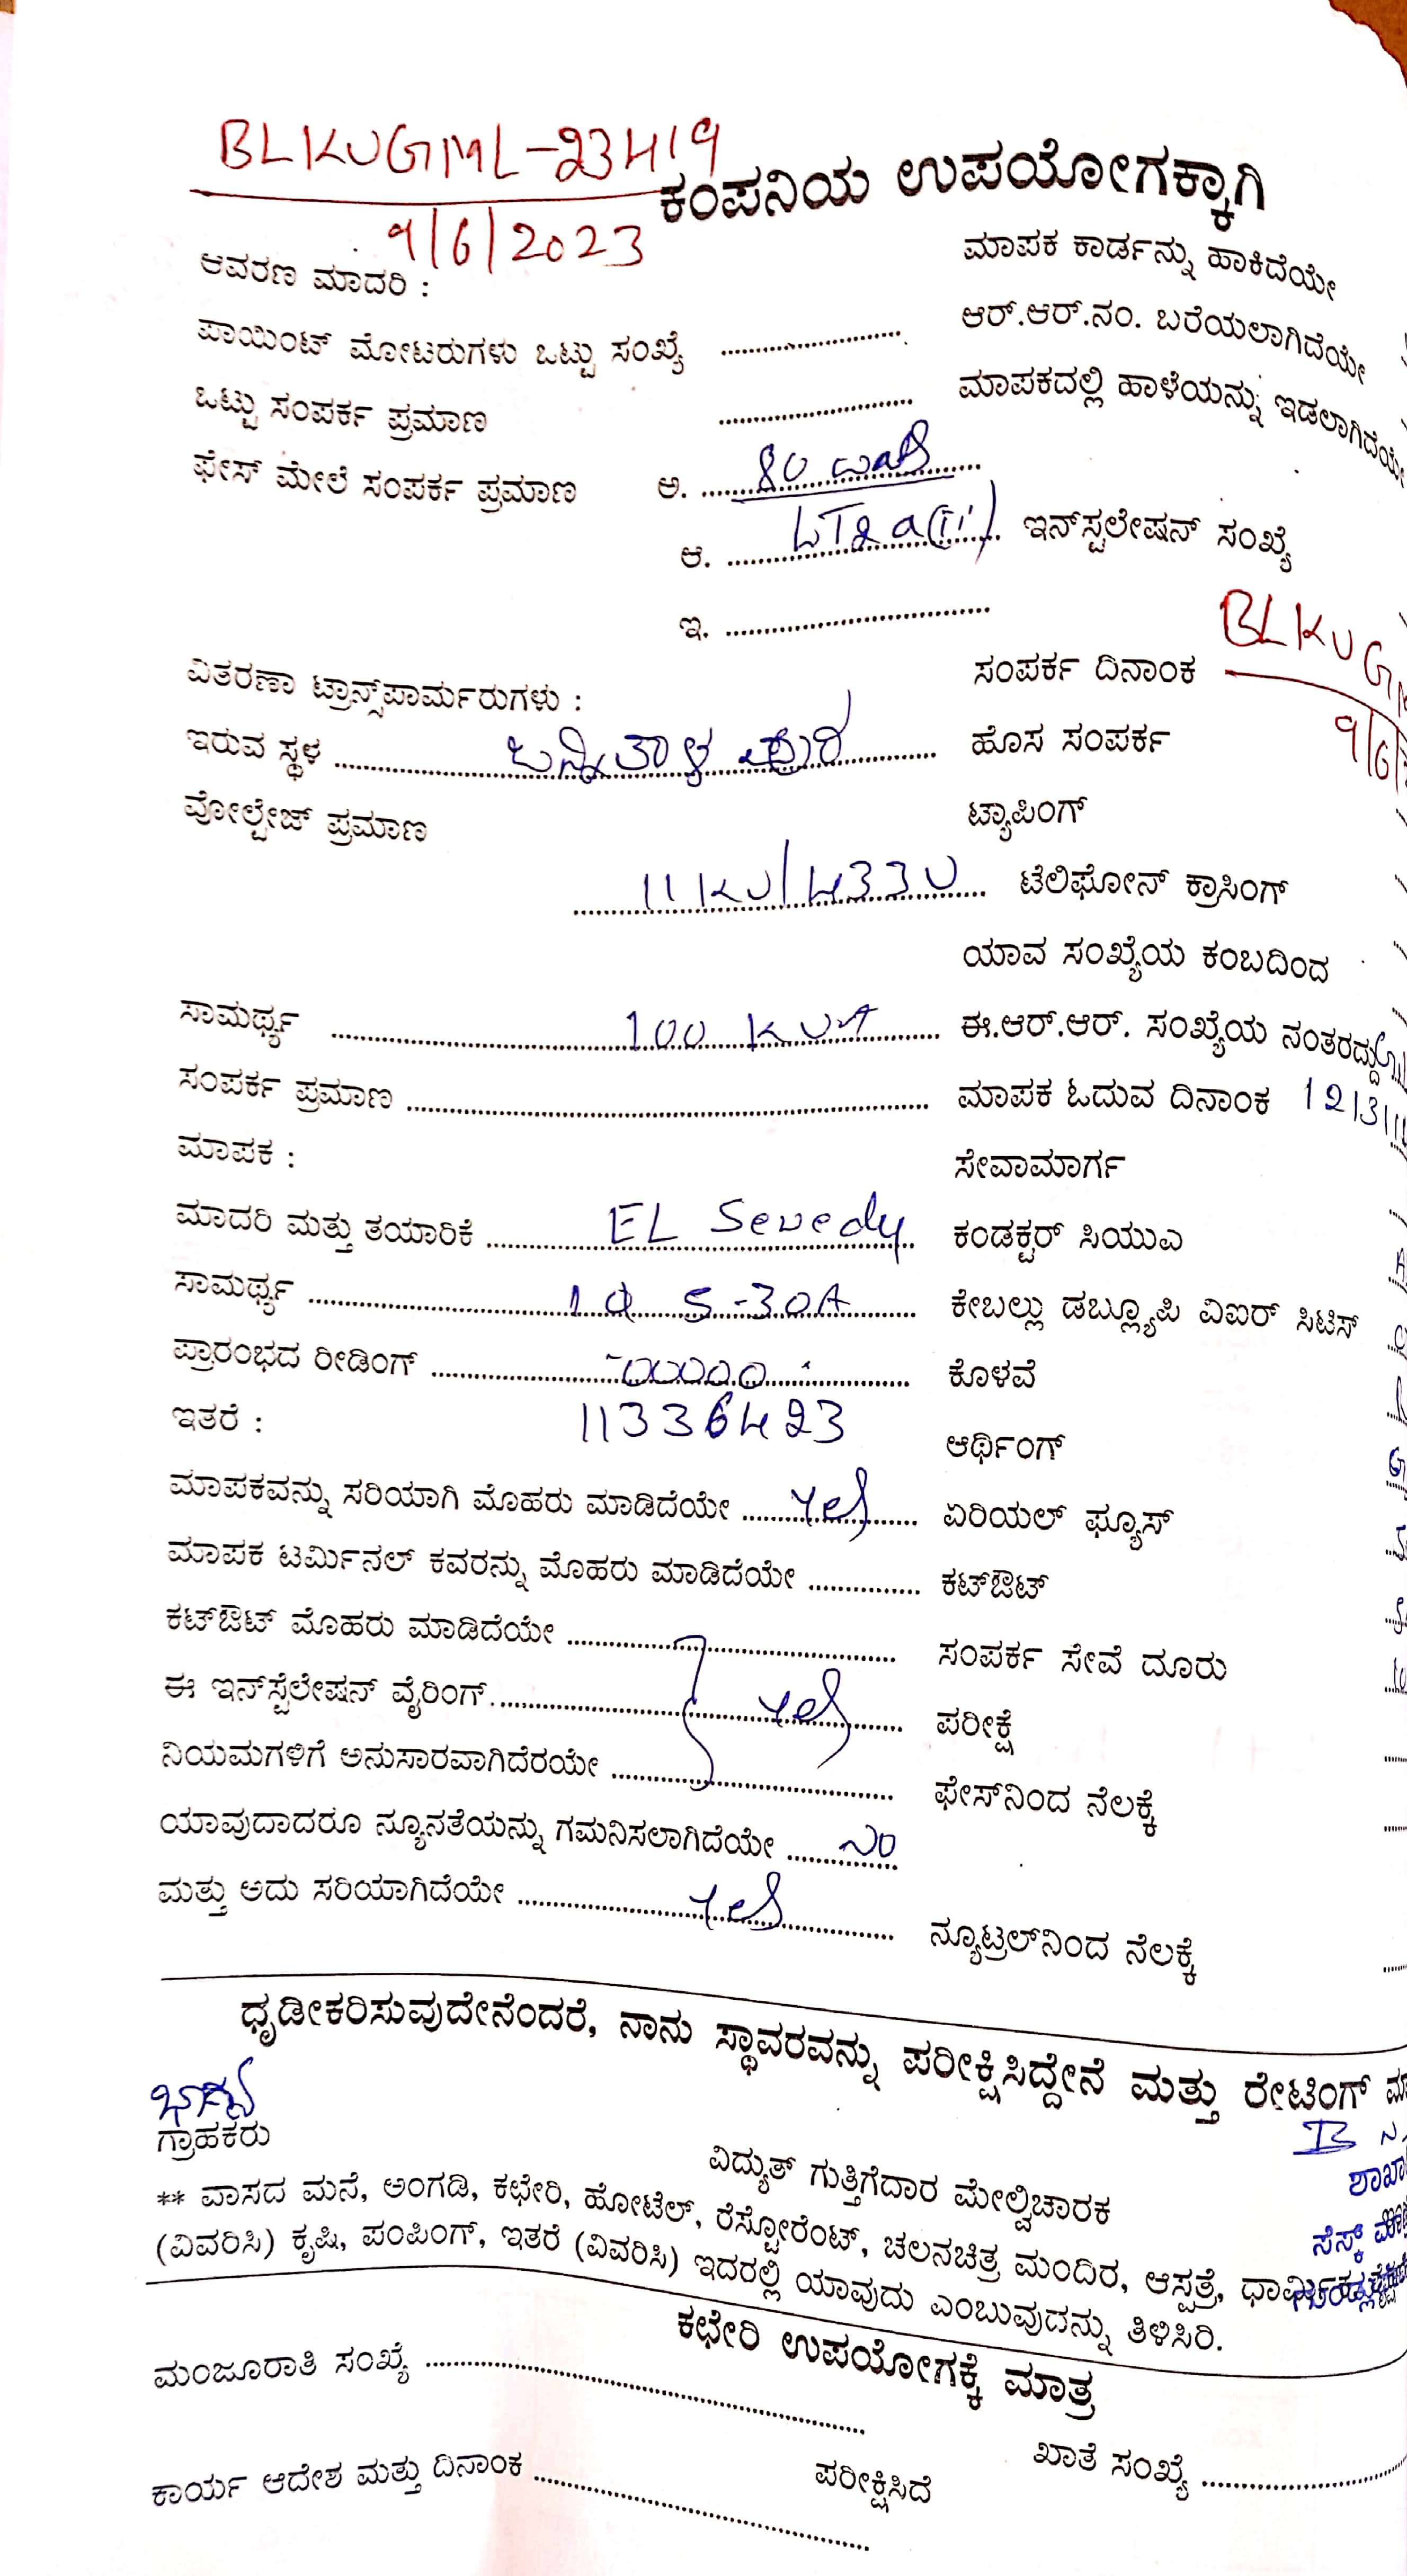 BLKUGML-23419
9/6/2023
ಕಂಪನಿಯ ಉಪಯೋಗಕ್ಕಾಗಿ
ಆವರಣ ಮಾದರಿ : ಮಾಪಕ ಕಾರ್ಡನ್ನು ಹಾಕಿದೆಯೇ
ಪಾಯಿಂಟ್ ಮೋಟರುಗಳು ಒಟ್ಟು ಸಂಖ್ಯೆ ........................ ಆರ್.ಆರ್.ನಂ. ಬರೆಯಲಾಗಿದೆಯೇ
ಒಟ್ಟು ಸಂಪರ್ಕ ಪ್ರಮಾಣ ........................ ಮಾಪಕದಲ್ಲಿ ಹಾಳೆಯನ್ನು ಇಡಲಾಗಿದೆಯೇ
ಫೇಸ್ ಮೇಲೆ ಸಂಪರ್ಕ ಪ್ರಮಾಣ ಅ. 80 ವಾಟ್
ಆ. LT2 a(ii) ಇನ್‌ಸ್ಟಲೇಷನ್ ಸಂಖ್ಯೆ
ಇ. ........................ BLKUG
ವಿತರಣಾ ಟ್ರಾನ್ಸ್‌ಪಾರ್ಮರುಗಳು : ಸಂಪರ್ಕ ದಿನಾಂಕ 9/6/
ಇರುವ ಸ್ಥಳ ಬನ್ನಿತಾಳಪುರ ಹೊಸ ಸಂಪರ್ಕ
ವೋಲ್ಟೇಜ್ ಪ್ರಮಾಣ ಟ್ಯಾಪಿಂಗ್
11KV/433V ಟೆಲಿಫೋನ್ ಕ್ರಾಸಿಂಗ್
ಯಾವ ಸಂಖ್ಯೆಯ ಕಂಬದಿಂದ
ಸಾಮರ್ಥ್ಯ 100 KVA ಈ.ಆರ್.ಆರ್. ಸಂಖ್ಯೆಯ ನಂತರದ್ದು
ಸಂಪರ್ಕ ಪ್ರಮಾಣ ........................ ಮಾಪಕ ಓದುವ ದಿನಾಂಕ
ಮಾಪಕ : ಸೇವಾಮಾರ್ಗ
ಮಾದರಿ ಮತ್ತು ತಯಾರಿಕೆ EL Sewedy ಕಂಡಕ್ಟರ್ ಸಿಯುಎ
ಸಾಮರ್ಥ್ಯ 1Φ 5-30A ಕೇಬಲ್ಲು ಡಬ್ಲ್ಯೂಪಿ ವಿಐರ್ ಸಿಟಿಸ್
ಪ್ರಾರಂಭದ ರೀಡಿಂಗ್ -00000 ಕೊಳವೆ
ಇತರೆ : 11336423 ಆರ್ಥಿಂಗ್
ಮಾಪಕವನ್ನು ಸರಿಯಾಗಿ ಮೊಹರು ಮಾಡಿದೆಯೇ yes ಏರಿಯಲ್ ಫ್ಯೂಸ್
ಮಾಪಕ ಟರ್ಮಿನಲ್ ಕವರನ್ನು ಮೊಹರು ಮಾಡಿದೆಯೇ ............... ಕಟ್‌ಔಟ್
ಕಟ್‌ಔಟ್ ಮೊಹರು ಮಾಡಿದೆಯೇ ............... ಸಂಪರ್ಕ ಸೇವೆ ದೂರು
ಈ ಇನ್‌ಸ್ಟೆಲೇಷನ್ ವೈರಿಂಗ್ yes ಪರೀಕ್ಷೆ
ನಿಯಮಗಳಿಗೆ ಅನುಸಾರವಾಗಿದೆರಯೇ ............... ಫೇಸ್‌ನಿಂದ ನೆಲಕ್ಕೆ
ಯಾವುದಾದರೂ ನ್ಯೂನತೆಯನ್ನು ಗಮನಿಸಲಾಗಿದೆಯೇ no
ಮತ್ತು ಅದು ಸರಿಯಾಗಿದೆಯೇ yes ನ್ಯೂಟ್ರಲ್‌ನಿಂದ ನೆಲಕ್ಕೆ
ಧೃಡೀಕರಿಸುವುದೇನೆಂದರೆ, ನಾನು ಸ್ಥಾವರವನ್ನು ಪರೀಕ್ಷಿಸಿದ್ದೇನೆ ಮತ್ತು ರೇಟಿಂಗ್
ಗ್ರಾಹಕರು ವಿದ್ಯುತ್ ಗುತ್ತಿಗೆದಾರ ಮೇಲ್ವಿಚಾರಕ
** ವಾಸದ ಮನೆ, ಅಂಗಡಿ, ಕಛೇರಿ, ಹೋಟೆಲ್, ರೆಸ್ಟೋರೆಂಟ್, ಚಲನಚಿತ್ರ ಮಂದಿರ, ಆಸ್ಪತ್ರೆ,
(ವಿವರಿಸಿ) ಕೃಷಿ, ಪಂಪಿಂಗ್, ಇತರೆ (ವಿವರಿಸಿ) ಇದರಲ್ಲಿ ಯಾವುದು ಎಂಬುವುದನ್ನು ತಿಳಿಸಿರಿ.
ಕಛೇರಿ ಉಪಯೋಗಕ್ಕೆ ಮಾತ್ರ
ಮಂಜೂರಾತಿ ಸಂಖ್ಯೆ ........................ ಖಾತೆ ಸಂಖ್ಯೆ ........................
ಕಾರ್ಯ ಆದೇಶ ಮತ್ತು ದಿನಾಂಕ ........................ ಪರೀಕ್ಷಿಸಿದೆ